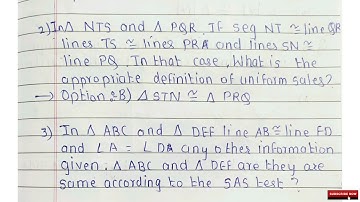 2) In Δ NTS and Δ PQR. If seg NT ≅ line QR
lines TS ≅ lines PRA and lines SN ≅
line PQ. In that case, What is the
appropriate definition of uniform sales?
→ Option :B) Δ STN ≅ Δ PRQ
3) In Δ ABC and Δ DEF line AB ≅ line FD
and ∠A = ∠DA any other information
given. Δ ABC and Δ DEF are they are
same according to the SAS test?
SUBSCRIBE NOW